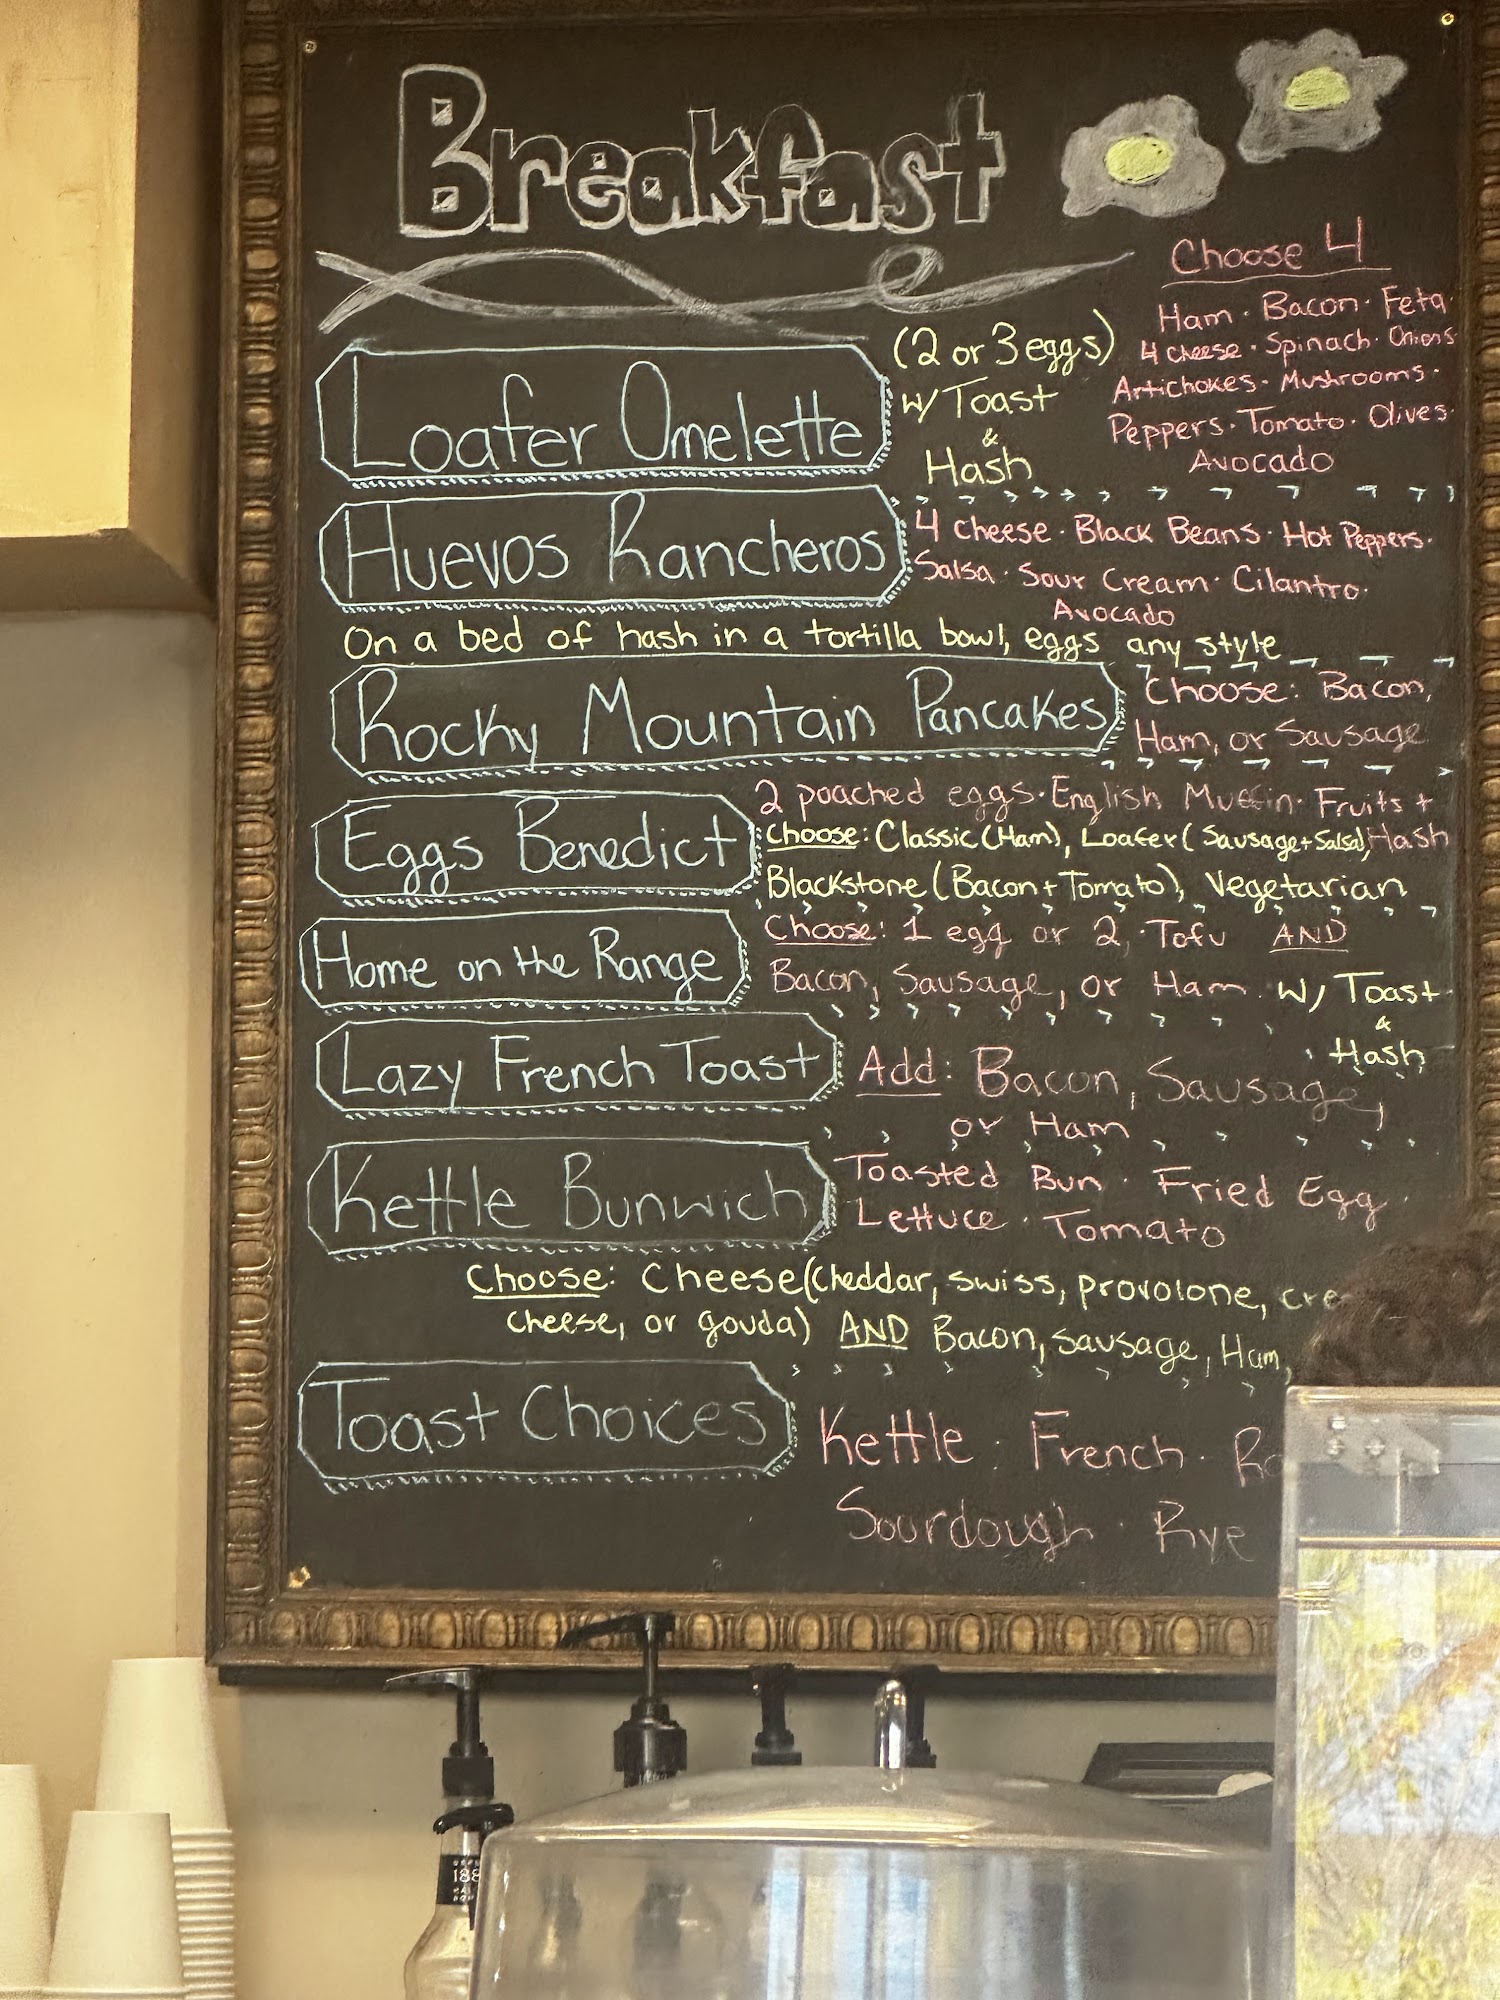 Breakfast
Choose 4
Ham · Bacon · Feta
4 cheese · Spinach · Onions
Artichokes · Mushrooms ·
Peppers · Tomato · Olives
Avocado
Loafer Omelette
(2 or 3 eggs)
w/ Toast
&
Hash
Huevos Rancheros
4 cheese · Black Beans · Hot Peppers ·
Salsa · Sour Cream · Cilantro ·
Avocado
On a bed of hash in a tortilla bowl, eggs any style
Rocky Mountain Pancakes
Choose: Bacon,
Ham, or Sausage
Eggs Benedict
2 poached eggs · English Muffin · Fruits +
Hash
Choose: Classic (Ham), Loafer (Sausage + Salsa),
Blackstone (Bacon + Tomato), Vegetarian
Home on the Range
Choose: 1 egg or 2, · Tofu AND
Bacon, Sausage, or Ham w/ Toast
&
Hash
Lazy French Toast
Add: Bacon, Sausage,
or Ham
Kettle Bunwich
Toasted Bun · Fried Egg ·
Lettuce · Tomato
Choose: Cheese (Cheddar, swiss, provolone,
cheese, or gouda) AND Bacon, Sausage, Ham,
Toast Choices
Kettle · French ·
Sourdough · Rye